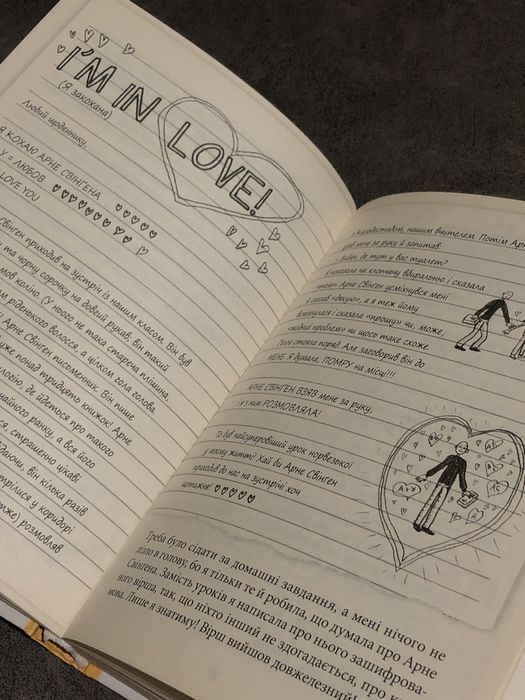 I'M IN
LOVE!
(Я закохана)
Любий щоденнику,
Я КОХАЮ АРНЕ СВІНГЕНА
У = ЛЮБОВ
LOVE YOU
Свінген приходив на зустріч із нашим класом. Він був
та чорну сорочку на довгий рукав. він такий
мов коліно. (У нього не така стареча плішина,
рідейького волосся, а цілком гола голова.
Арне Свінген письменник. Він пише
уже понад тридцять книжок! Арне
логію, де йдеться про такого
чайного ранку, а вся його
ся, страшенно цікаві
даючи, він кілька разів
трілися у коридорі
же) розмовляв
з Калґодстадом, нашим вчителем. Потім Арне
узяв мене за руку й запитав:
– Вибач, де тут у вас туалет?
Я показала на хлопчачу вбиральню і сказала
«там». Арне Свінген усміхнувся мені
й сказав «дякую», а я теж йому
всміхнулася і сказала «прошу» чи, може,
«жодних проблем» чи щось таке схоже.
Галя стояла поряд! Але заговорив він до
МЕНЕ. Я думала, ПОМРУ на місці!!!
АРНЕ СВІНГЕН ВЗЯВ мене за руку,
і я з ним РОЗМОВЛЯЛА!
То був найсуперовіший урок норвезької
у моєму житті! Хай би Арне Свінген
приходив до нас на зустрічі хоч
щотижня!
А+У
Треба було сідати за домашні завдання, а мені нічого не
лізло в голову, бо я тільки те й робила, що думала про Арне
Свінгена. Замість уроків я написала про нього зашифрова-
ного вірша, так, що ніхто інший не здогадається, про кого
мова. Лише я знатиму! Вірш вийшов довжелезний!